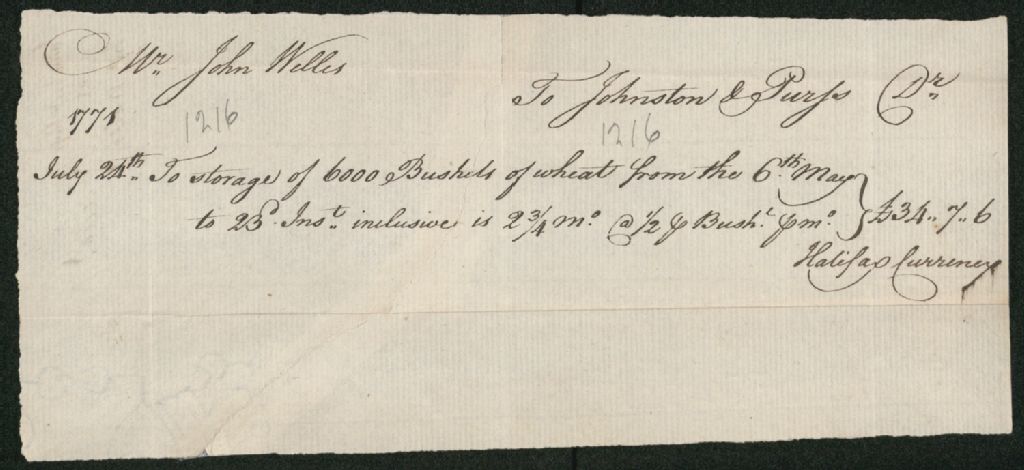 Mr. John Welles
To Johnston & Purss Dr.
1771
1216
1216
July 24th. To storage of 6000 Bushels of wheat from the 6th. May
to 23d. Inst. inclusive is 2 3/4 mo. @ 1/2 ⅌ Bushl. ⅌ mo. } £34..7..6
Halifax Currency